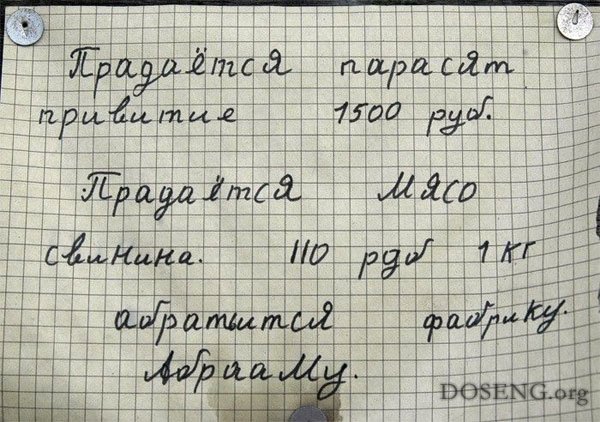 Прадаётся парасят
привитие 1500 руб.
Прадаётся мясо
свинина. 110 рдб 1 кг
абратытся фабрику.
Абрааму.
DOSENG.org